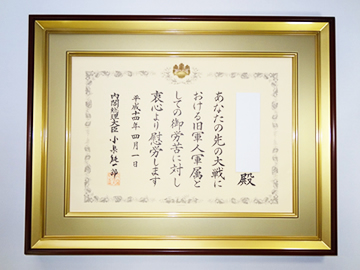 殿
あなたの先の大戦に
おける旧軍人軍属と
しての御労苦に対し
衷心より慰労します
平成十四年四月一日
内閣総理大臣 小泉純一郎